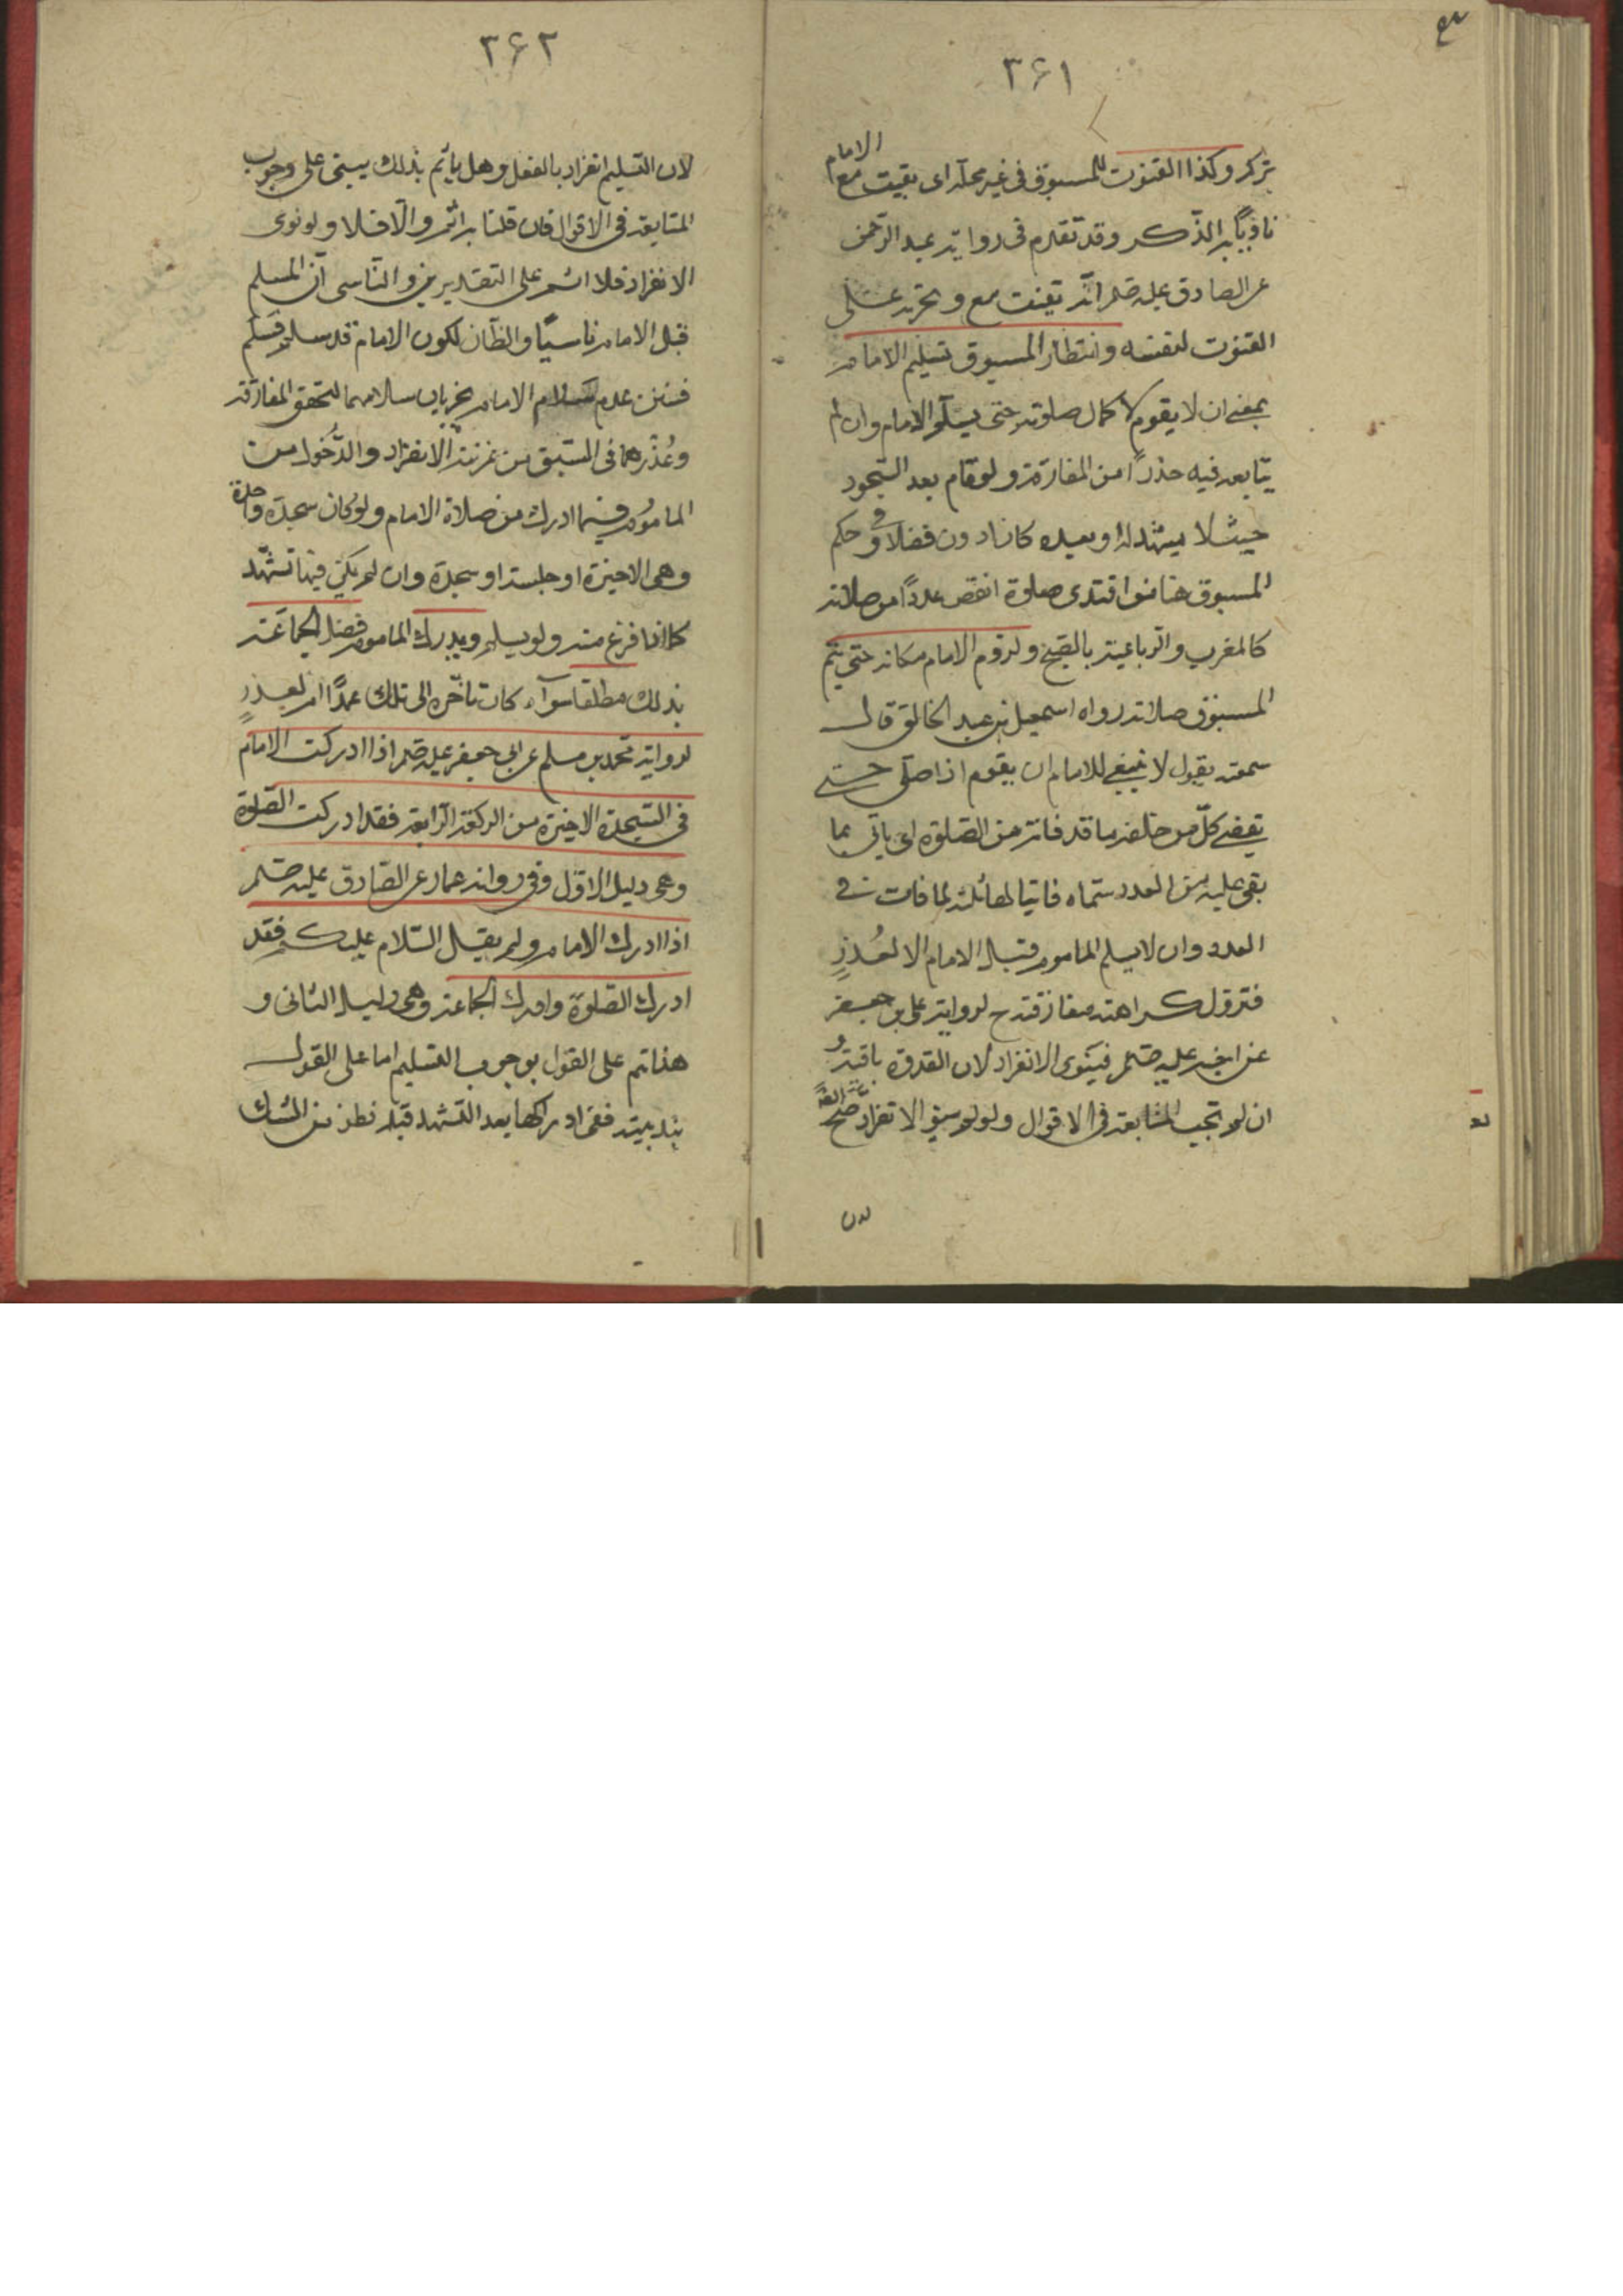 ۳۶۱
بتركه وكذا القنوت للمسبوق فى غير محله اى بقيت مع الامام
ناويًا به الذّكر وقد تقدم فى رواية عبد الرّحمن
عن الصادق عليه صلم انّه يقنت مع ويجزيه عن
القنوت لنفسه وانتظار المسبوق تسليم الامام
بمعنى ان لا يقوم لاكمال صلوته حتى يسلّم الامام وان لم
يتابعه فيه حذرًا من المفارقة ولو قام بعد السّجود
حيث لا يتشهد له او بعده كانا دون فضلا وفى حكم
المسبوق هنا من اقتدى صلوة انقص عددًا من صلاته
كالمغرب والرّباعية بالصبح ولزوم الامام مكانه حتى يتم
المسبوق صلاته رواه اسمعيل بن عبد الخالق قال
سمعته يقول لا ينبغى للامام ان يقوم اذا صلّى حتى
يقضى كلّ من خلفه ما قد فاته من الصّلوة اى ياتى بما
بقى عليه من العدد سماه فائتا لمماثلته لما فات فى
العدد وان لا يسلم الماموم قبل الامام الا لعُذرٍ
فتزول كراهته مفارقته ح لرواية على بن جعفر
عن اخيه عليه صلم فينوى الانفراد لان القدوة باقية و
ان لم تجب المتابعة فى الاقوال ولو لم ينو الانفراد صح
لان
۳۶۲
لان التسليم انفراد بالفعل وهل ياثم بذلك يبنى على وجوب
المتابعة فى الاقوال فان قلنا به اثم والّا فلا ولو نوى
الانفراد فلا اثم على التقديرين والنّاسى اى المسلم
قبل الامام ناسيًا والظّان لكون الامام قد سلم فسلّم
فتبين عدم سلام الامام يجزيان سلامهما لتحقق المفارقة
وعُذْرهما فى السّبق من غير نية الانفراد والدّخول من
الماموم فيما ادرك من صلاة الامام ولو كان سجدة واحدة
وهى الاخيرة او جلسة او سجدة وان لم يكن فيها تشهّد
كما اذا فرغ منه ولم يسلم ويدرك الماموم فضل الجماعة
بذلك مطلقا سوآء كان تاخّره الى تلك عمدًا ام لعذرٍ
لرواية محمد بن مسلم عن ابى جعفر عليه صلم اذا ادركت الامام
فى السّجدة الاخيرة من الركعة الرّابعة فقد ادركت الصّلوة
وهى دليل الاوّل وفى رواية عمار عن الصّادق عليه صلم
اذا ادرك الامام ولم يقل السّلام عليكم فقد
ادرك الصّلوة وادرك الجماعة وهى دليل الثانى و
هذا يتم على القول بوجوب التسليم اما على القول
بندبيته ففى ادراكها بعد التشهد قبله نظر من الشك